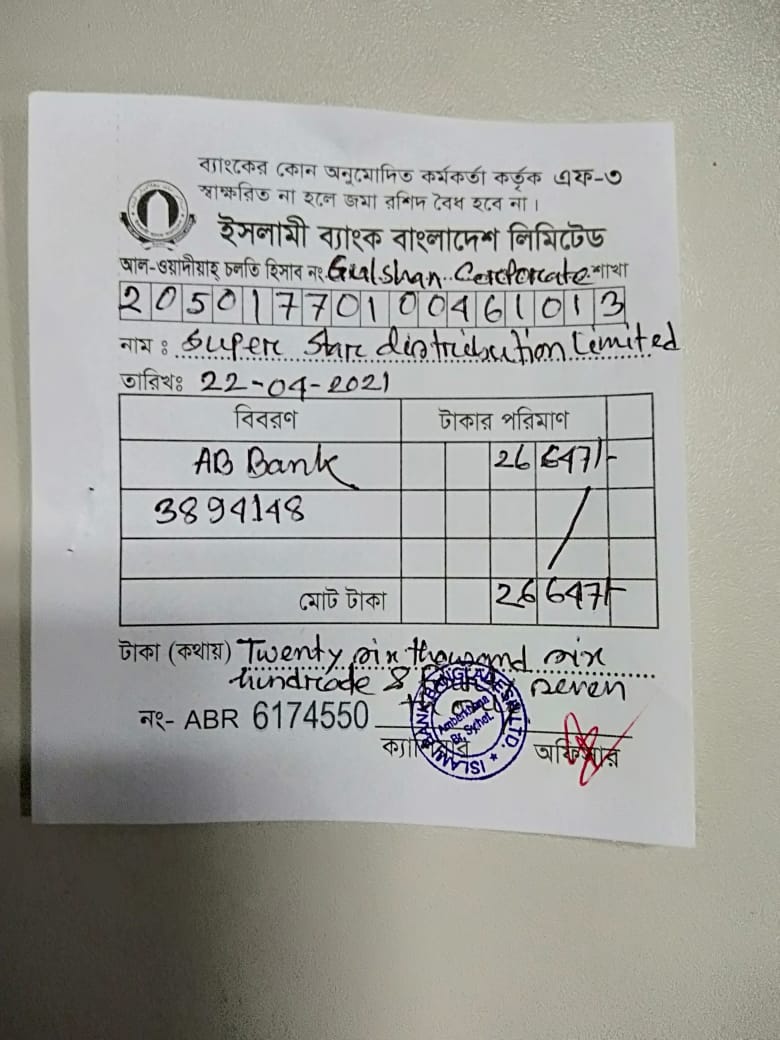 ব্যাংকের কোন অনুমোদিত কর্মকর্তা কর্তৃক এফ-৩
স্বাক্ষরিত না হলে জমা রশিদ বৈধ হবে না।
ইসলামী ব্যাংক বাংলাদেশ লিমিটেড
আল-ওয়াদীয়াহ্ চলতি হিসাব নং Gulshan Corporate শাখা
20501770100461013
নাম : Super Star distribution Limited
তারিখঃ 22-04-2021
বিবরণ টাকার পরিমাণ
AB Bank 26 647/-
3894148
মোট টাকা 26 647/-
টাকা (কথায়) Twenty six thousand six
hundrede & seven
নং- ABR 6174550
ISLAMI BANK BANGLADESH LTD.
Amberkhana
Br, Sylhet.
ক্যাশিয়ার অফিসার